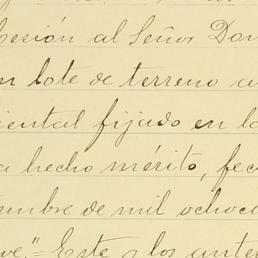 cesión al Señor Don
n lote de terreno a
iental fijado en la
a hecho mérito, fec
iembre de mil ochoc
ve," = Este y los ante